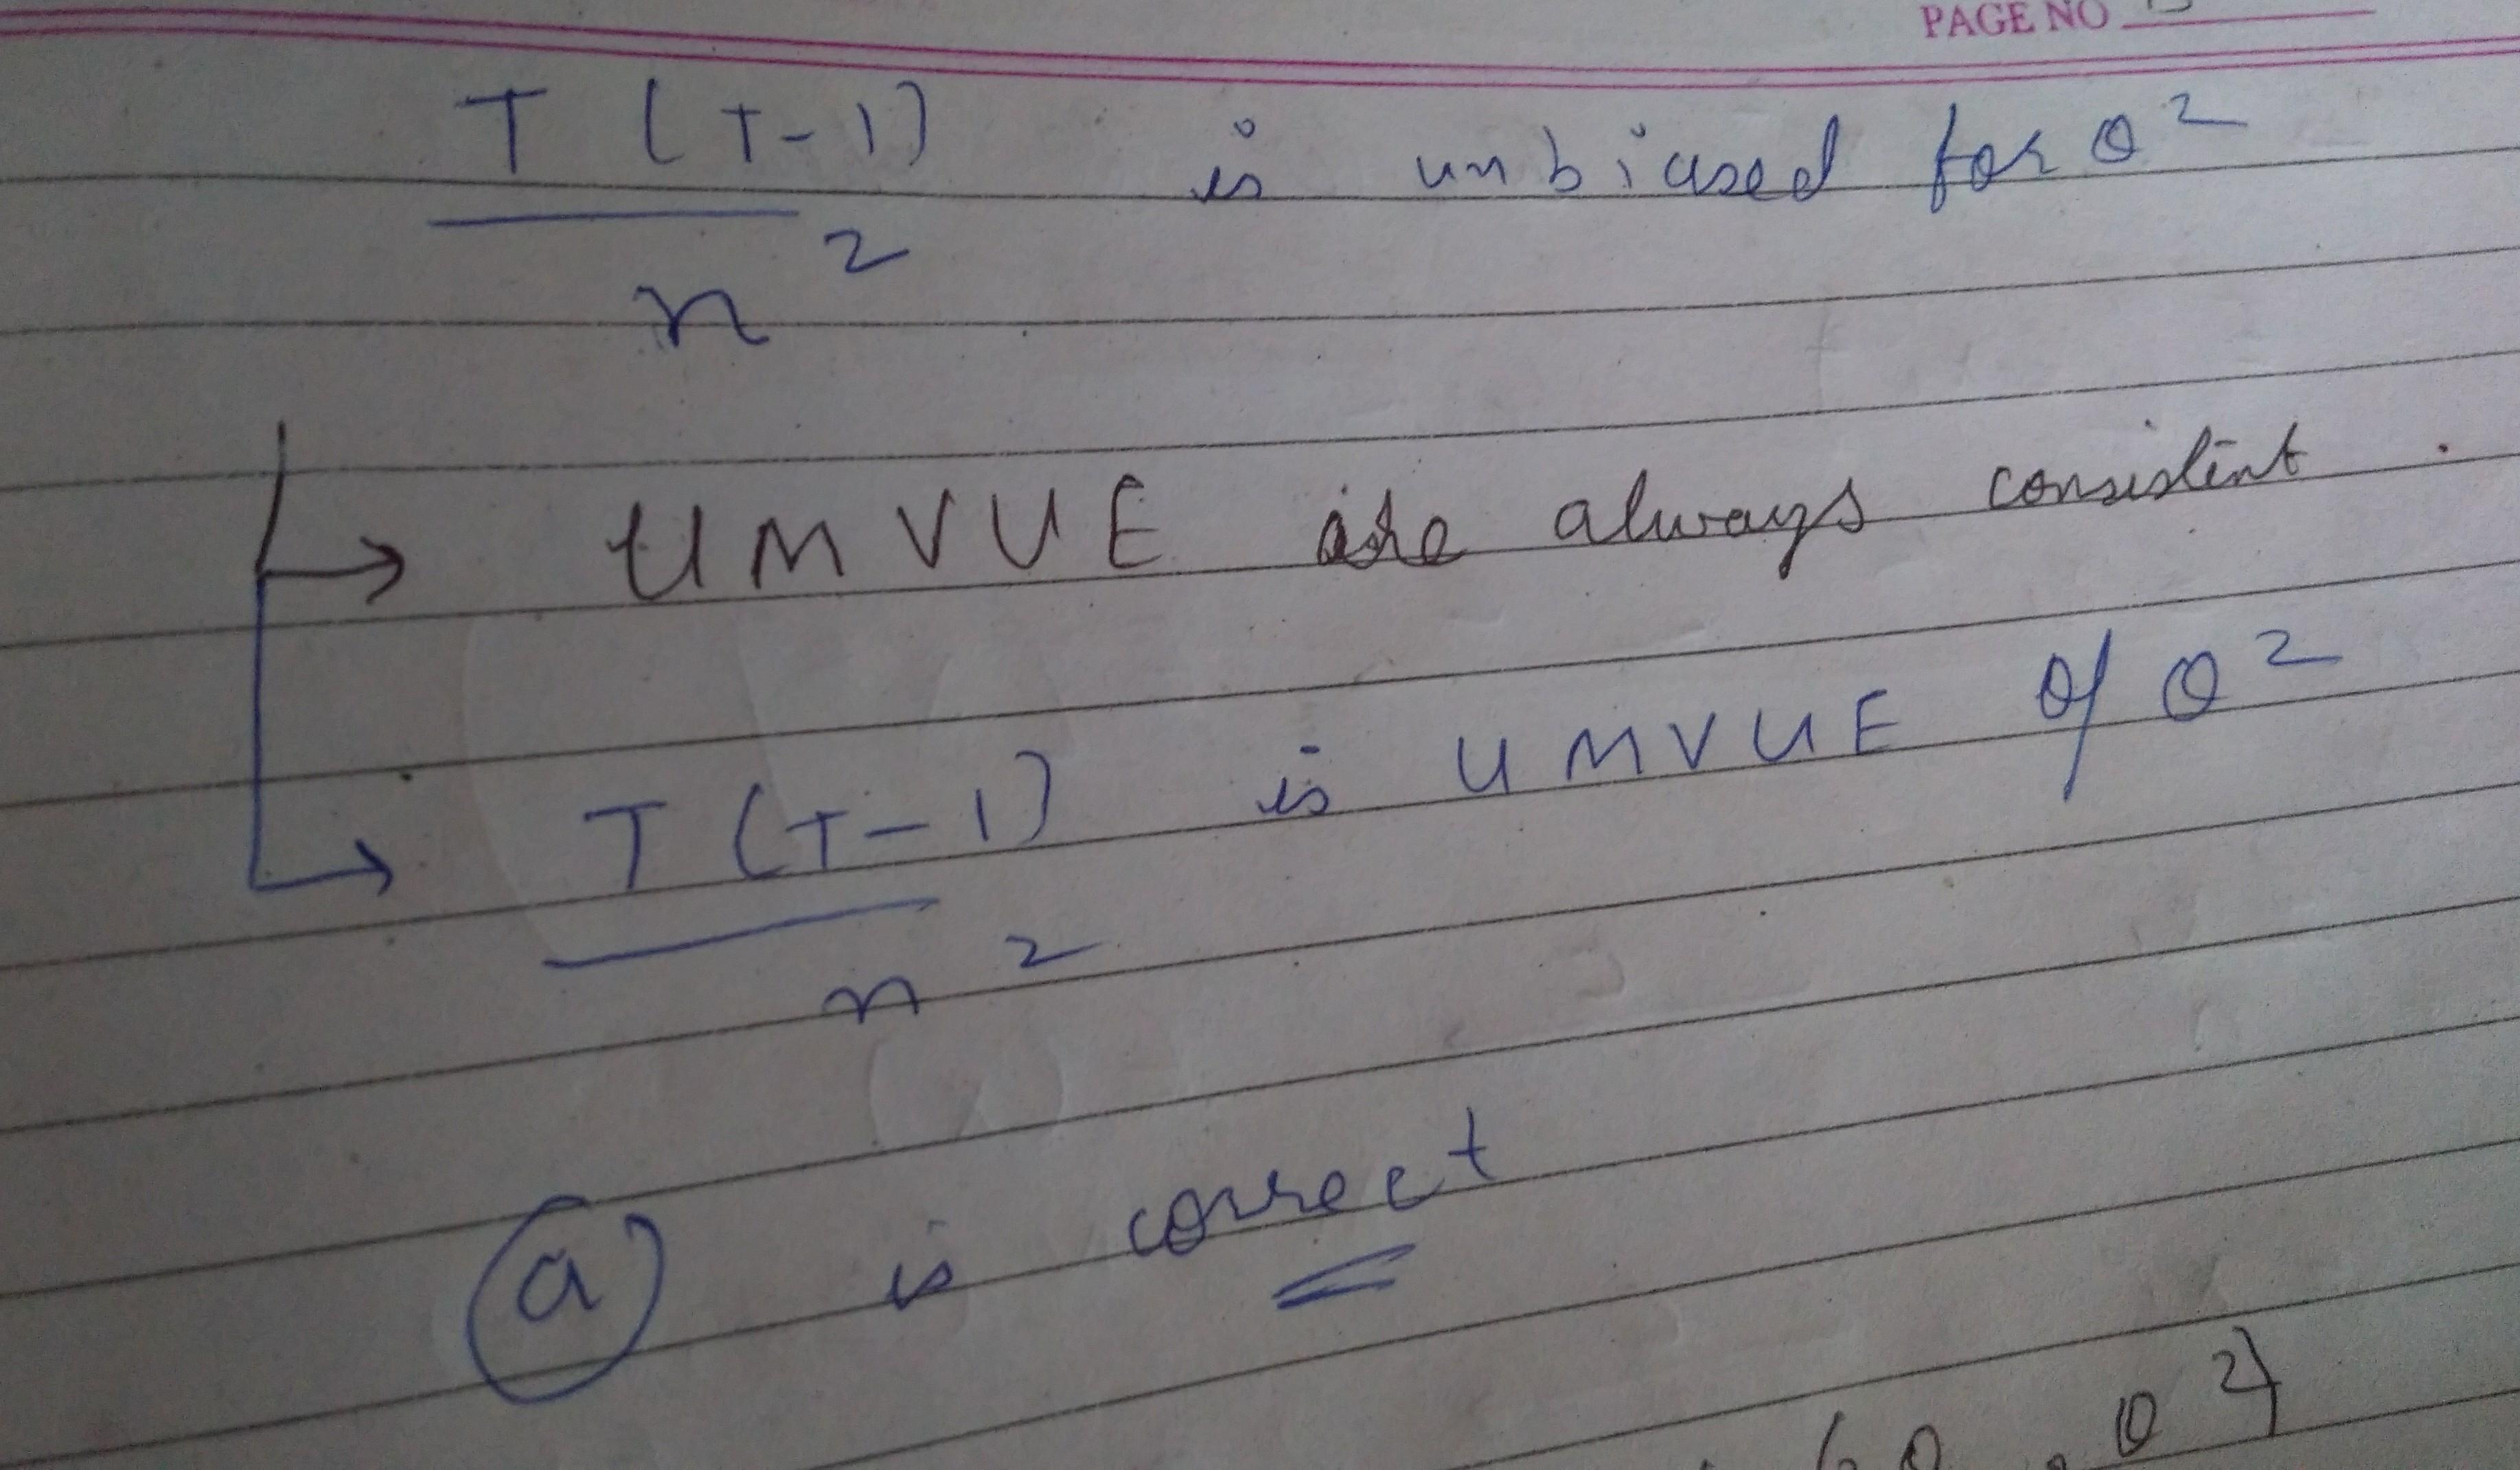 PAGE NO
T (T-1) is unbiased for θ²
n²
UMVUE are always consistent.
T (T-1) is UMVUE of θ²
n²
(a) is correct